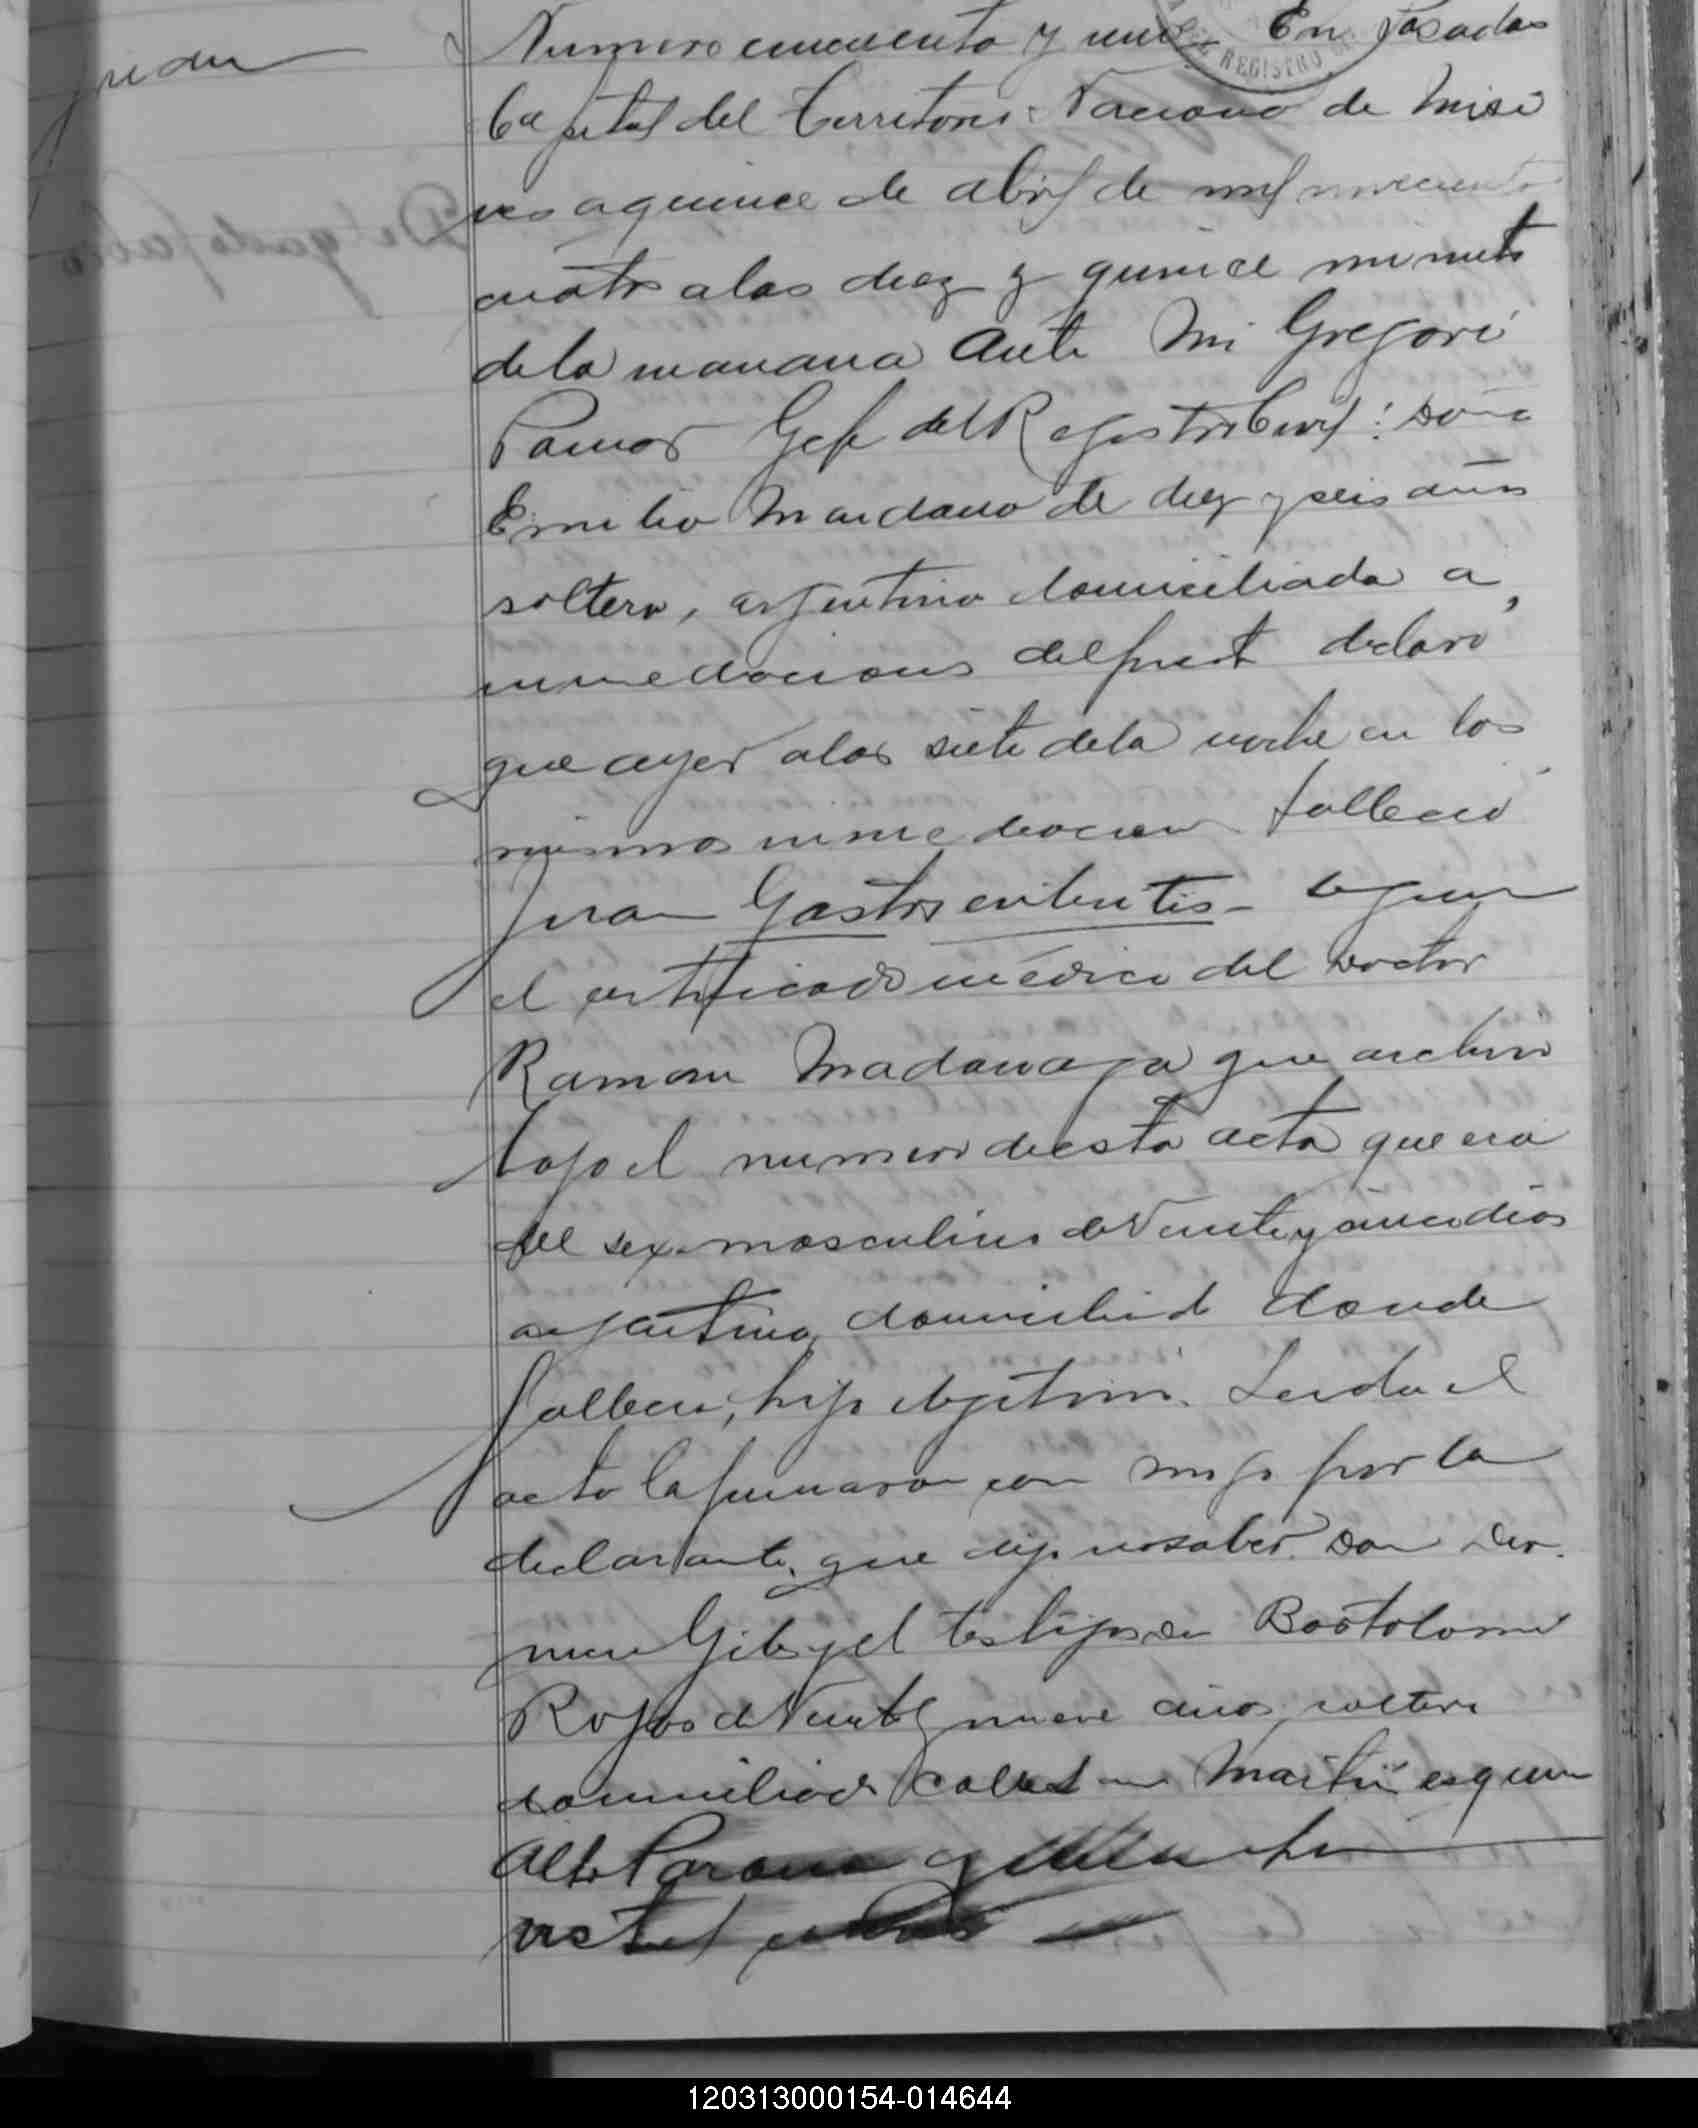 Numero cincuenta y uno En Posadas
Capital del Territorio Nacional de Misio
nes a quince de abril de mil novecientos
cuatro a las diez y quince minutos
de la manana Ante Mi Gregorio
Gefe del Registro Civil: Doña
Emilia de diez y seis años
soltera, argentina domiciliada a
inmediaciones del declaró
que ayer a las siete de la noche en las
mismas inmediaciones fallecio
Juan Gastroenteritis segun
el certificado médico del Doctor
Ramon Madariaga que archivo
bajo el numero de esta acta que era
del sexo masculino de Veinte y cinco dias
argentino, domiciliado donde
fallecio, hijo Leida el
acta la firmaron con migo por la
declarante, que dijo no saber Don
Gil y el testigo Don Bartolome
Rojas de Veinte y nueve años, soltero
domiciliado calle San Martin esquina
Alto Parana
visto el
REGISTRO
120313000154-014644